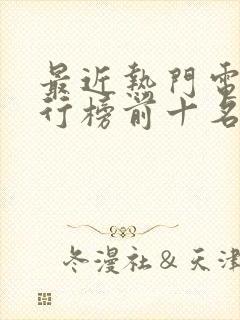 最近熱門電
行榜前十名
冬漫社&天津